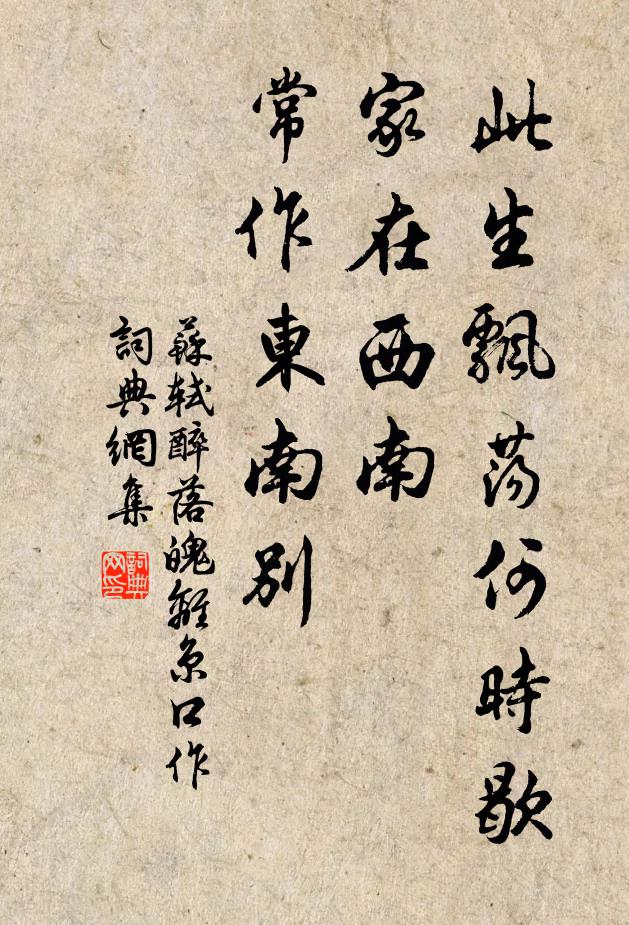 此生飄蕩何時歇
家在西南
常作東南別
蘇軾醉落魄離京口作
詞典網集
詞典
网印